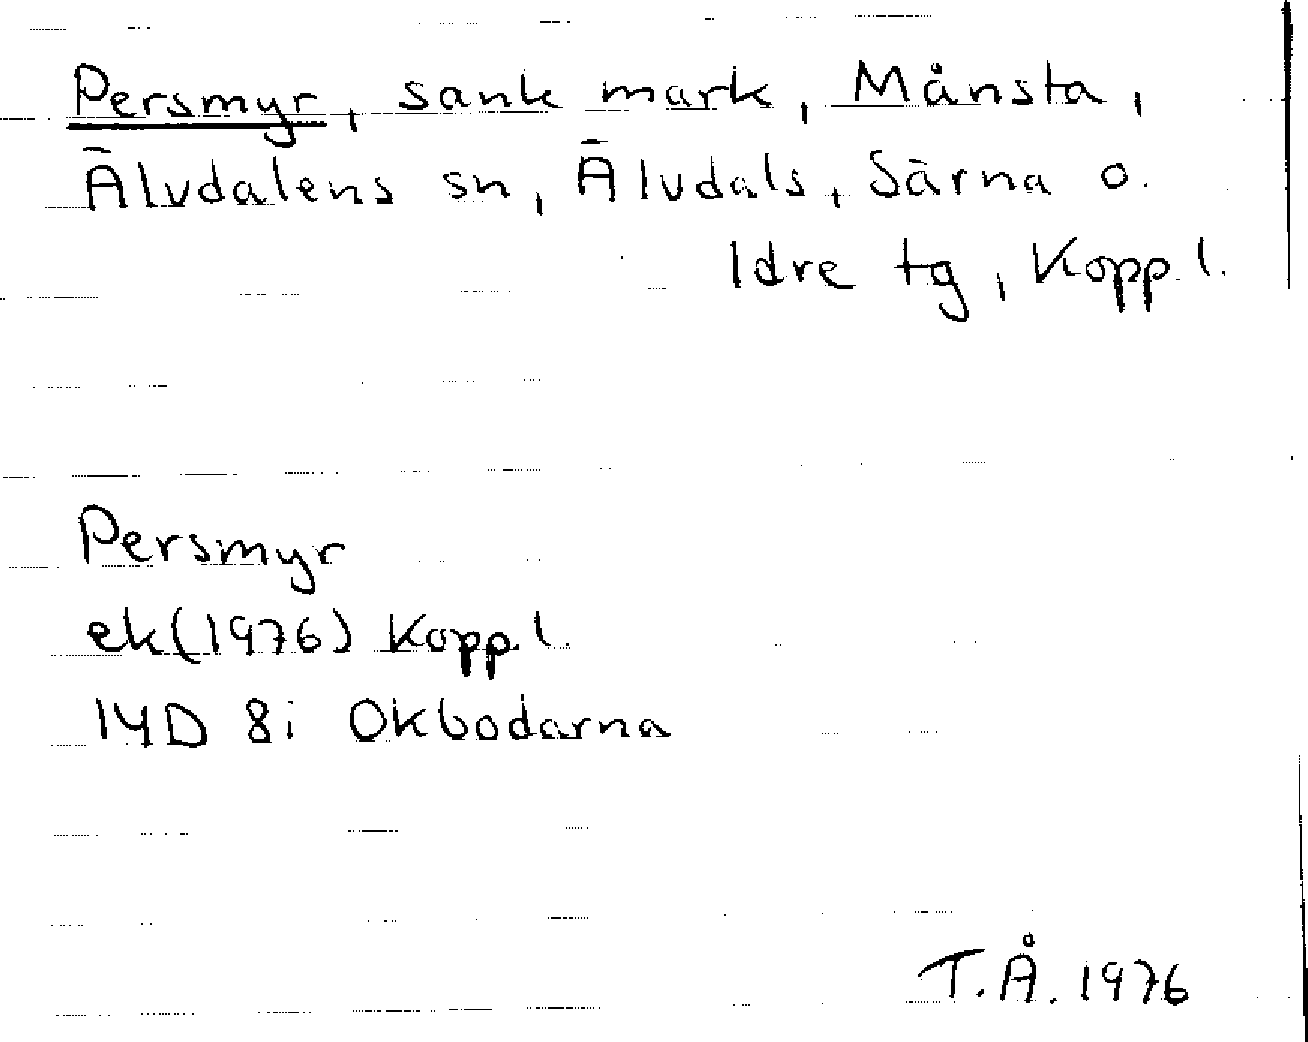 Persmyr, sank mark, Månsta,
Älvdalens sn, Älvdals, Särna o.
Idre tg, Kopp. l.
Persmyr
ek(1976) Kopp. l.
14D 8i Okbodarna
T.Å. 1976